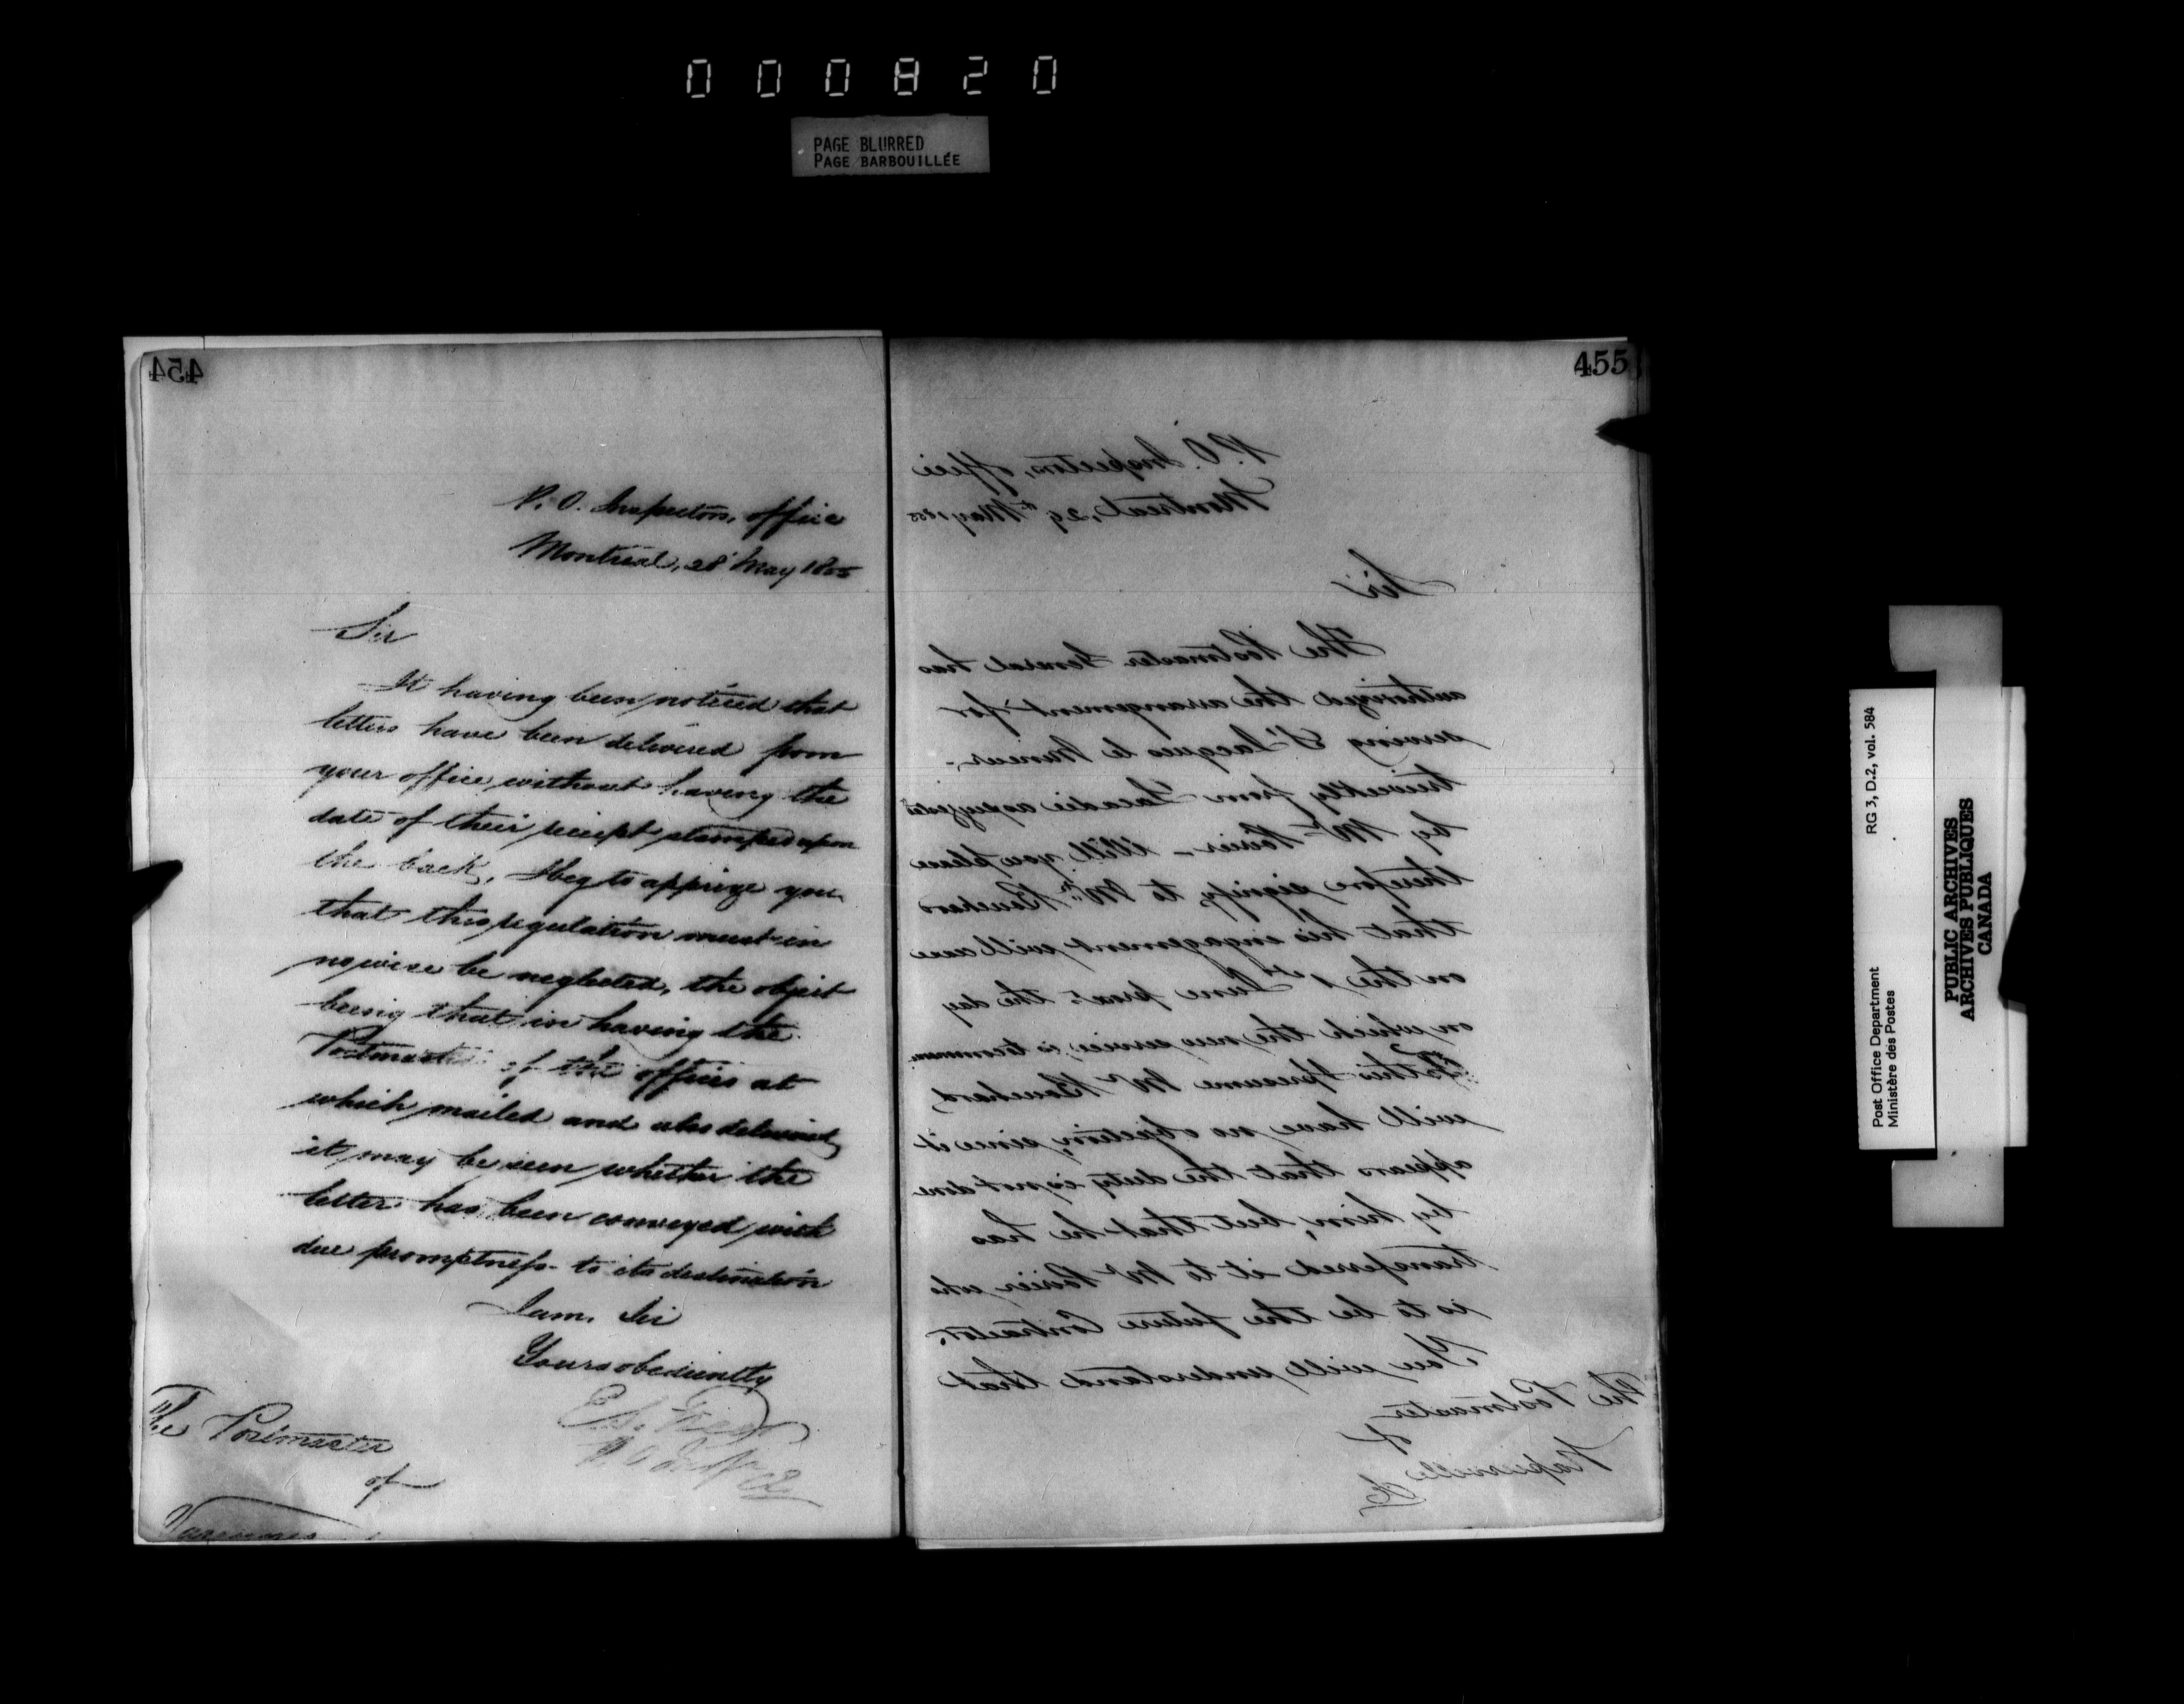 000820
PAGE BLURRED
PAGE BARBOUILLÉE
454
P. O. Inspectors, office
Montreal, 28 May 1855
Sir
It having been noticed that
letters have been delivered from
your office without having the
date of their receipt stamped upon
the back, I beg to apprize you
that this regulation must in
nowise be neglected, the object
being that in having the
Postmaster of the offices at
which mailed and also delivered
it may be seen whether the
letter has been conveyed with
due promptness to its destination
I am, Sir
Yours obediently
E. S. Freer
P. O. Inspr
The Postmaster
of
Varennes
455
P. O. Inspectors, office
Montreal, 29th May 1855
Sir
The Postmaster General has
authorized the arrangement for
serving St Jacques le Mineur
triweekly from Lacadie as suggested
by Mr Poirier – Will you please
therefore signify to Mr Bouchard
that his engagement will cease
on the 1st June proxo the day
on which the new service is to commence
To this I presume Mr Bouchard,
will have no objection, since it
appears that the duty is not done
by him, but that he has
transferred it to Mr Poirier who
is to be the future Contractor.
You will understand that
The Postmaster
of
Napierville
Post Office Department
Ministère des Postes
RG 3, D.2, vol. 584
PUBLIC ARCHIVES
ARCHIVES PUBLIQUES
CANADA